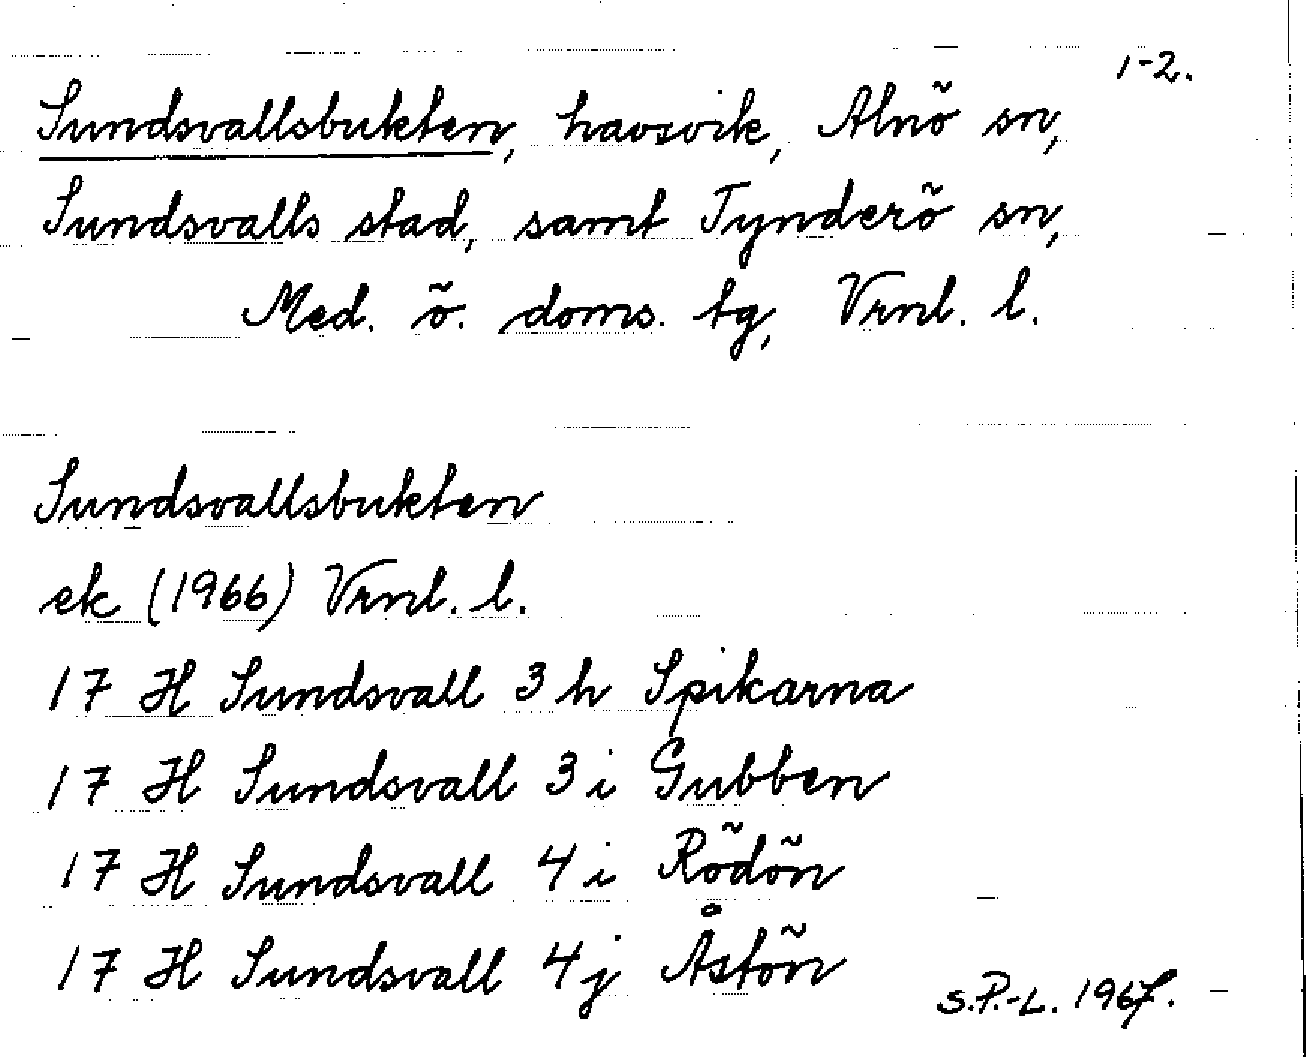 1-2.
Sundsvallsbukten, havsvik, Alnö sn,
Sundsvalls stad, samt Tynderö sn,
Med. ö. doms. tg, Vrnl. l.
Sundsvallsbukten
ek (1966) Vrnl. l.
17 H Sundsvall 3 h Spikarna
17 H Sundsvall 3 i Gubben
17 H Sundsvall 4 i Rödön
17 H Sundsvall 4 j Åstön
S.P.-L. 1967.